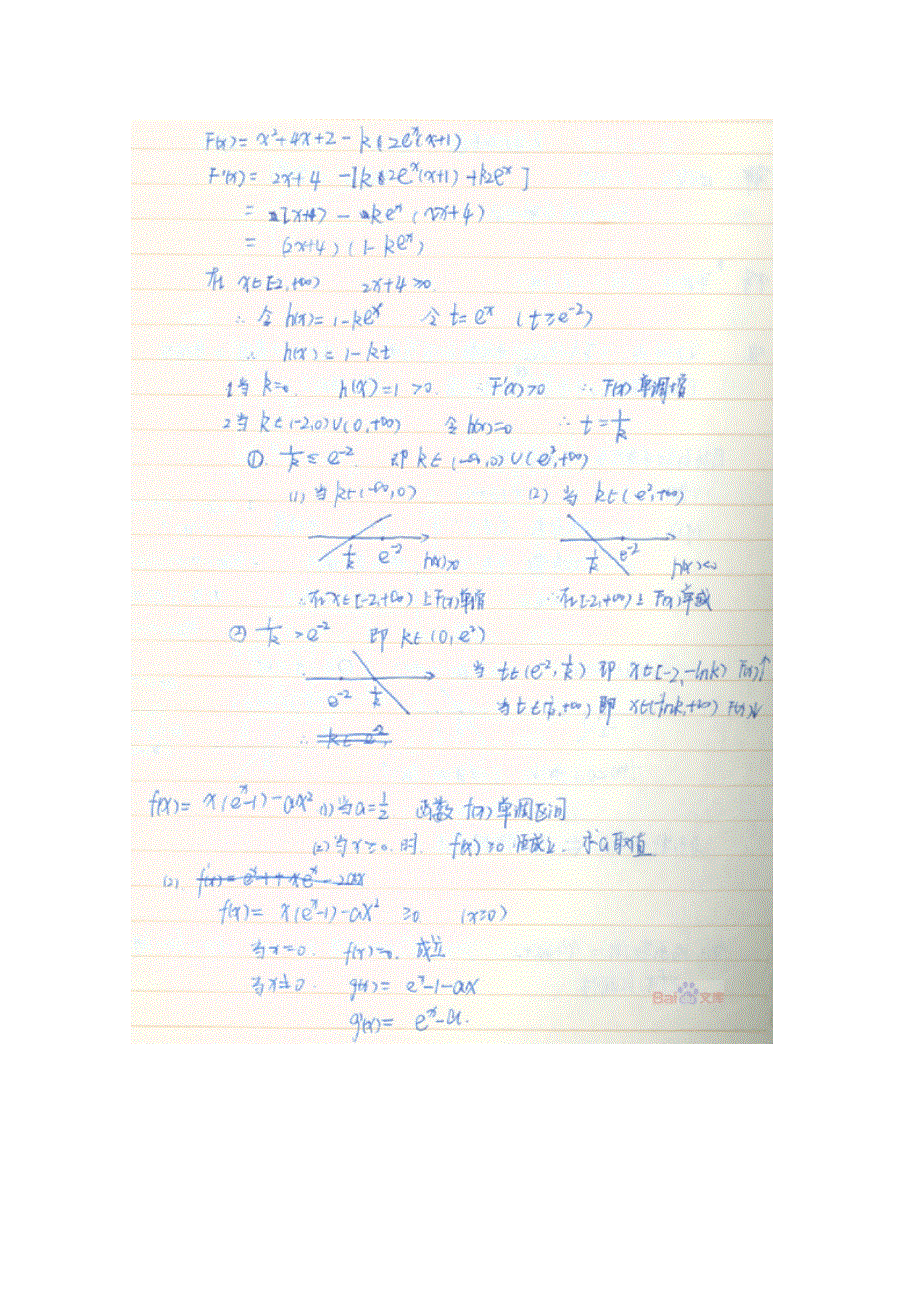 F(x)= x²+4x+2 - k 2eˣ(x+1)
F'(x)= 2x+4 -[k 2eˣ(x+1)+k2eˣ]
= (2x+4) - keˣ(2x+4)
= (2x+4)(1-keˣ)
在 x∈[-2,+∞) 2x+4≥0
∴ 令 h(x)=1-keˣ 令 t=eˣ (t≥e⁻²)
∴ h(x)=1-kt
1当 k=0, h(x)=1>0. ∴F'(x)>0 ∴F(x)单调增
2当 k∈(-2,0)∪(0,+∞) 令h(x)=0 ∴ t=1/k
①. 1/k≤e⁻² 即 k∈(-∞,0)∪(e²,+∞)
(1) 当k∈(-∞,0) (2) 当 k∈(e²,+∞)
1/k e⁻² h(x)>0 1/k e⁻² h(x)<0
∴在x∈[-2,+∞)上F(x)单增 ∴在[-2,+∞)上F(x)单减
② 1/k>e⁻² 即 k∈(0,e²)
当 t∈(e⁻²,1/k) 即 x∈[-2,-lnk) F(x)↑
e⁻² 1/k 当t∈(1/k,+∞) 即 x∈(-lnk,+∞) F(x)↓
∴ k∈ e²
f(x)= x(eˣ-1)-ax² (1)当a=1/2 函数 f(x)单调区间
(2)当x≥0时, f(x)≥0 恒成立. 求a取值
(2) f'(x)=eˣ-1+xeˣ-2ax
f(x)= x(eˣ-1)-ax² ≥0 (x≥0)
当x=0. f(x)=0. 成立
当x≠0. g(x)= eˣ-1-ax
g'(x)= eˣ-a.
Bai文库